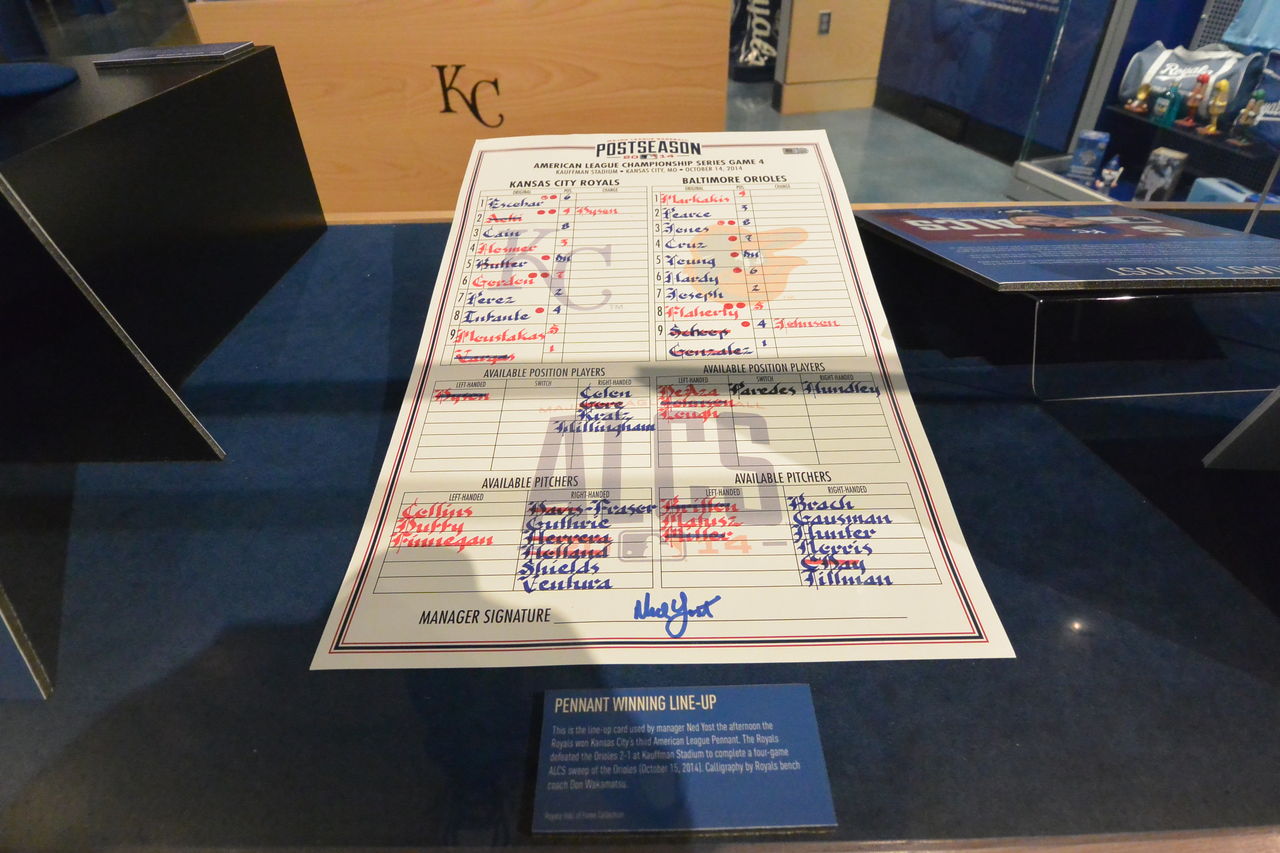 KC
Royals
Royals
POSTSEASON
2014
AMERICAN LEAGUE CHAMPIONSHIP SERIES GAME 4
KAUFFMAN STADIUM • KANSAS CITY, MO • OCTOBER 14, 2014
KANSAS CITY ROYALS
ORIGINAL POS. CHANGE
1 Escobar 6
2 Aoki 9 Dyson
3 Cain 8
4 Hosmer 3
5 Butler DH
6 Gordon 7
7 Perez 2
8 Infante 4
9 Moustakas 5
Vargas 1
BALTIMORE ORIOLES
ORIGINAL POS. CHANGE
1 Markakis 9
2 Pearce 3
3 Jones 8
4 Cruz 7
5 Young DH
6 Hardy 6
7 Joseph 2
8 Flaherty 5
9 Schoop 4 Johnson
Gonzalez 1
KC
AVAILABLE POSITION PLAYERS
LEFT-HANDED SWITCH RIGHT-HANDED
Dyson Colon
Gore
Kratz
Willingham
AVAILABLE POSITION PLAYERS
LEFT-HANDED SWITCH RIGHT-HANDED
DeAza Paredes Hundley
Johnson
Lough
ALCS
14
AVAILABLE PITCHERS
LEFT-HANDED RIGHT-HANDED
Collins Davis-Fraser
Duffy Guthrie
Finnegan Herrera
Holland
Shields
Ventura
AVAILABLE PITCHERS
LEFT-HANDED RIGHT-HANDED
Britton Brach
Matusz Gausman
Miller Hunter
Norris
O'Day
Tillman
MANAGER SIGNATURE Ned Yost
PENNANT WINNING LINE-UP
This is the line-up card used by manager Ned Yost the afternoon the
Royals won Kansas City's third American League Pennant. The Royals
defeated the Orioles 2-1 at Kauffman Stadium to complete a four-game
ALCS sweep of the Orioles (October 15, 2014). Calligraphy by Royals bench
coach Don Wakamatsu.
Royals Hall of Fame Collection